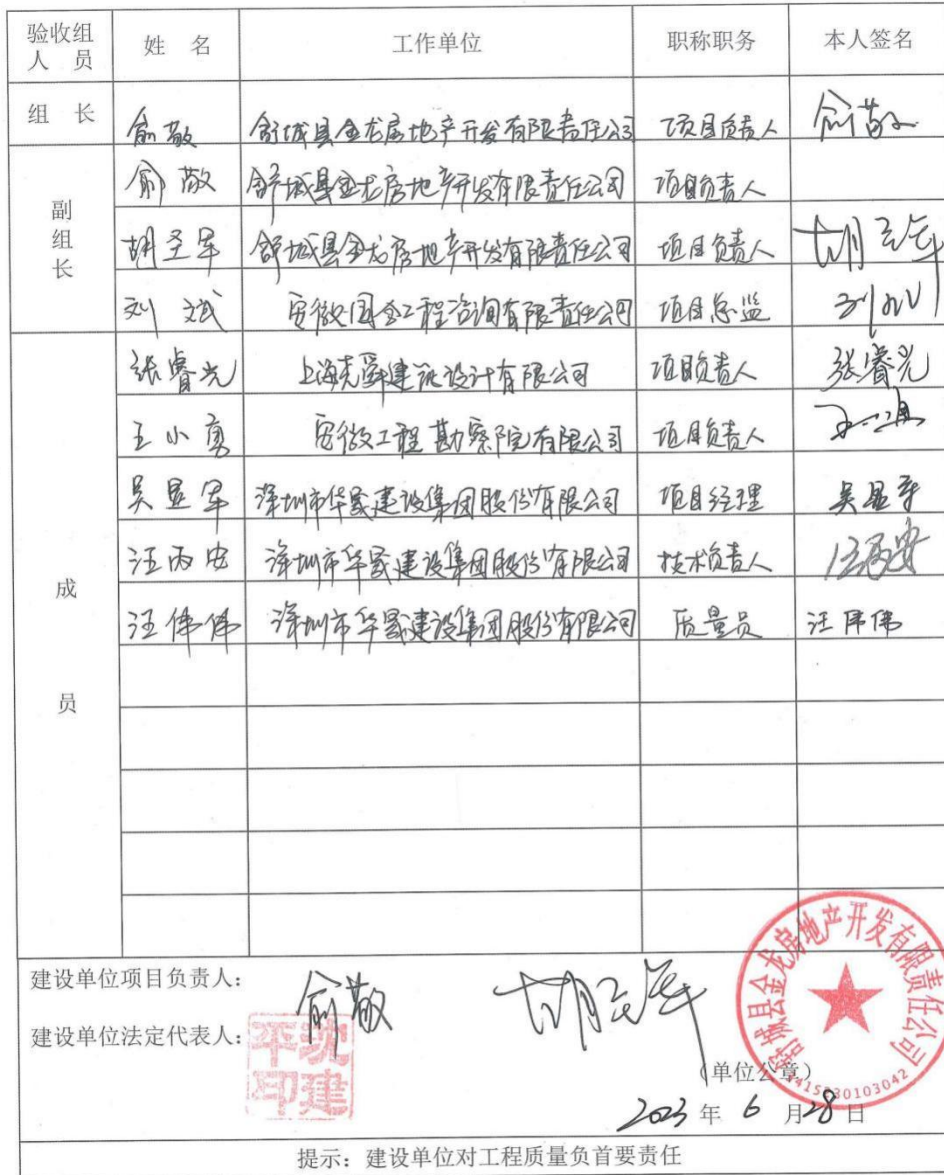 验收组人员 姓 名 工作单位 职称职务 本人签名
组 长 俞敬 舒城县金龙房地产开发有限责任公司 项目负责人 俞敬
副组长 俞敬 舒城县金龙房地产开发有限责任公司 项目负责人
胡圣军 舒城县金龙房地产开发有限责任公司 项目负责人 胡圣军
刘斌 安徽国金工程咨询有限责任公司 项目总监
成员 张睿光 上海尧舜建筑设计有限公司 项目负责人 张睿光
王小勇 安徽工程勘察院有限公司 项目负责人
吴显军 深圳市华晟建设集团股份有限公司 项目经理 吴显军
汪丙安 深圳市华晟建设集团股份有限公司 技术负责人 汪丙安
汪伟伟 深圳市华晟建设集团股份有限公司 质量员 汪伟伟
建设单位项目负责人: 俞敬 胡圣军
建设单位法定代表人: 沈建平印
舒城县金龙房地产开发有限责任公司
(单位公章)
2023 年 6 月 28 日
提示:建设单位对工程质量负首要责任